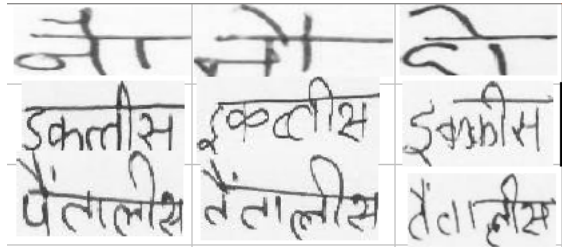 इकत्तीस इकत्तीस इक्कीस
पैंतालीस तैंतालीस तैंतालीस